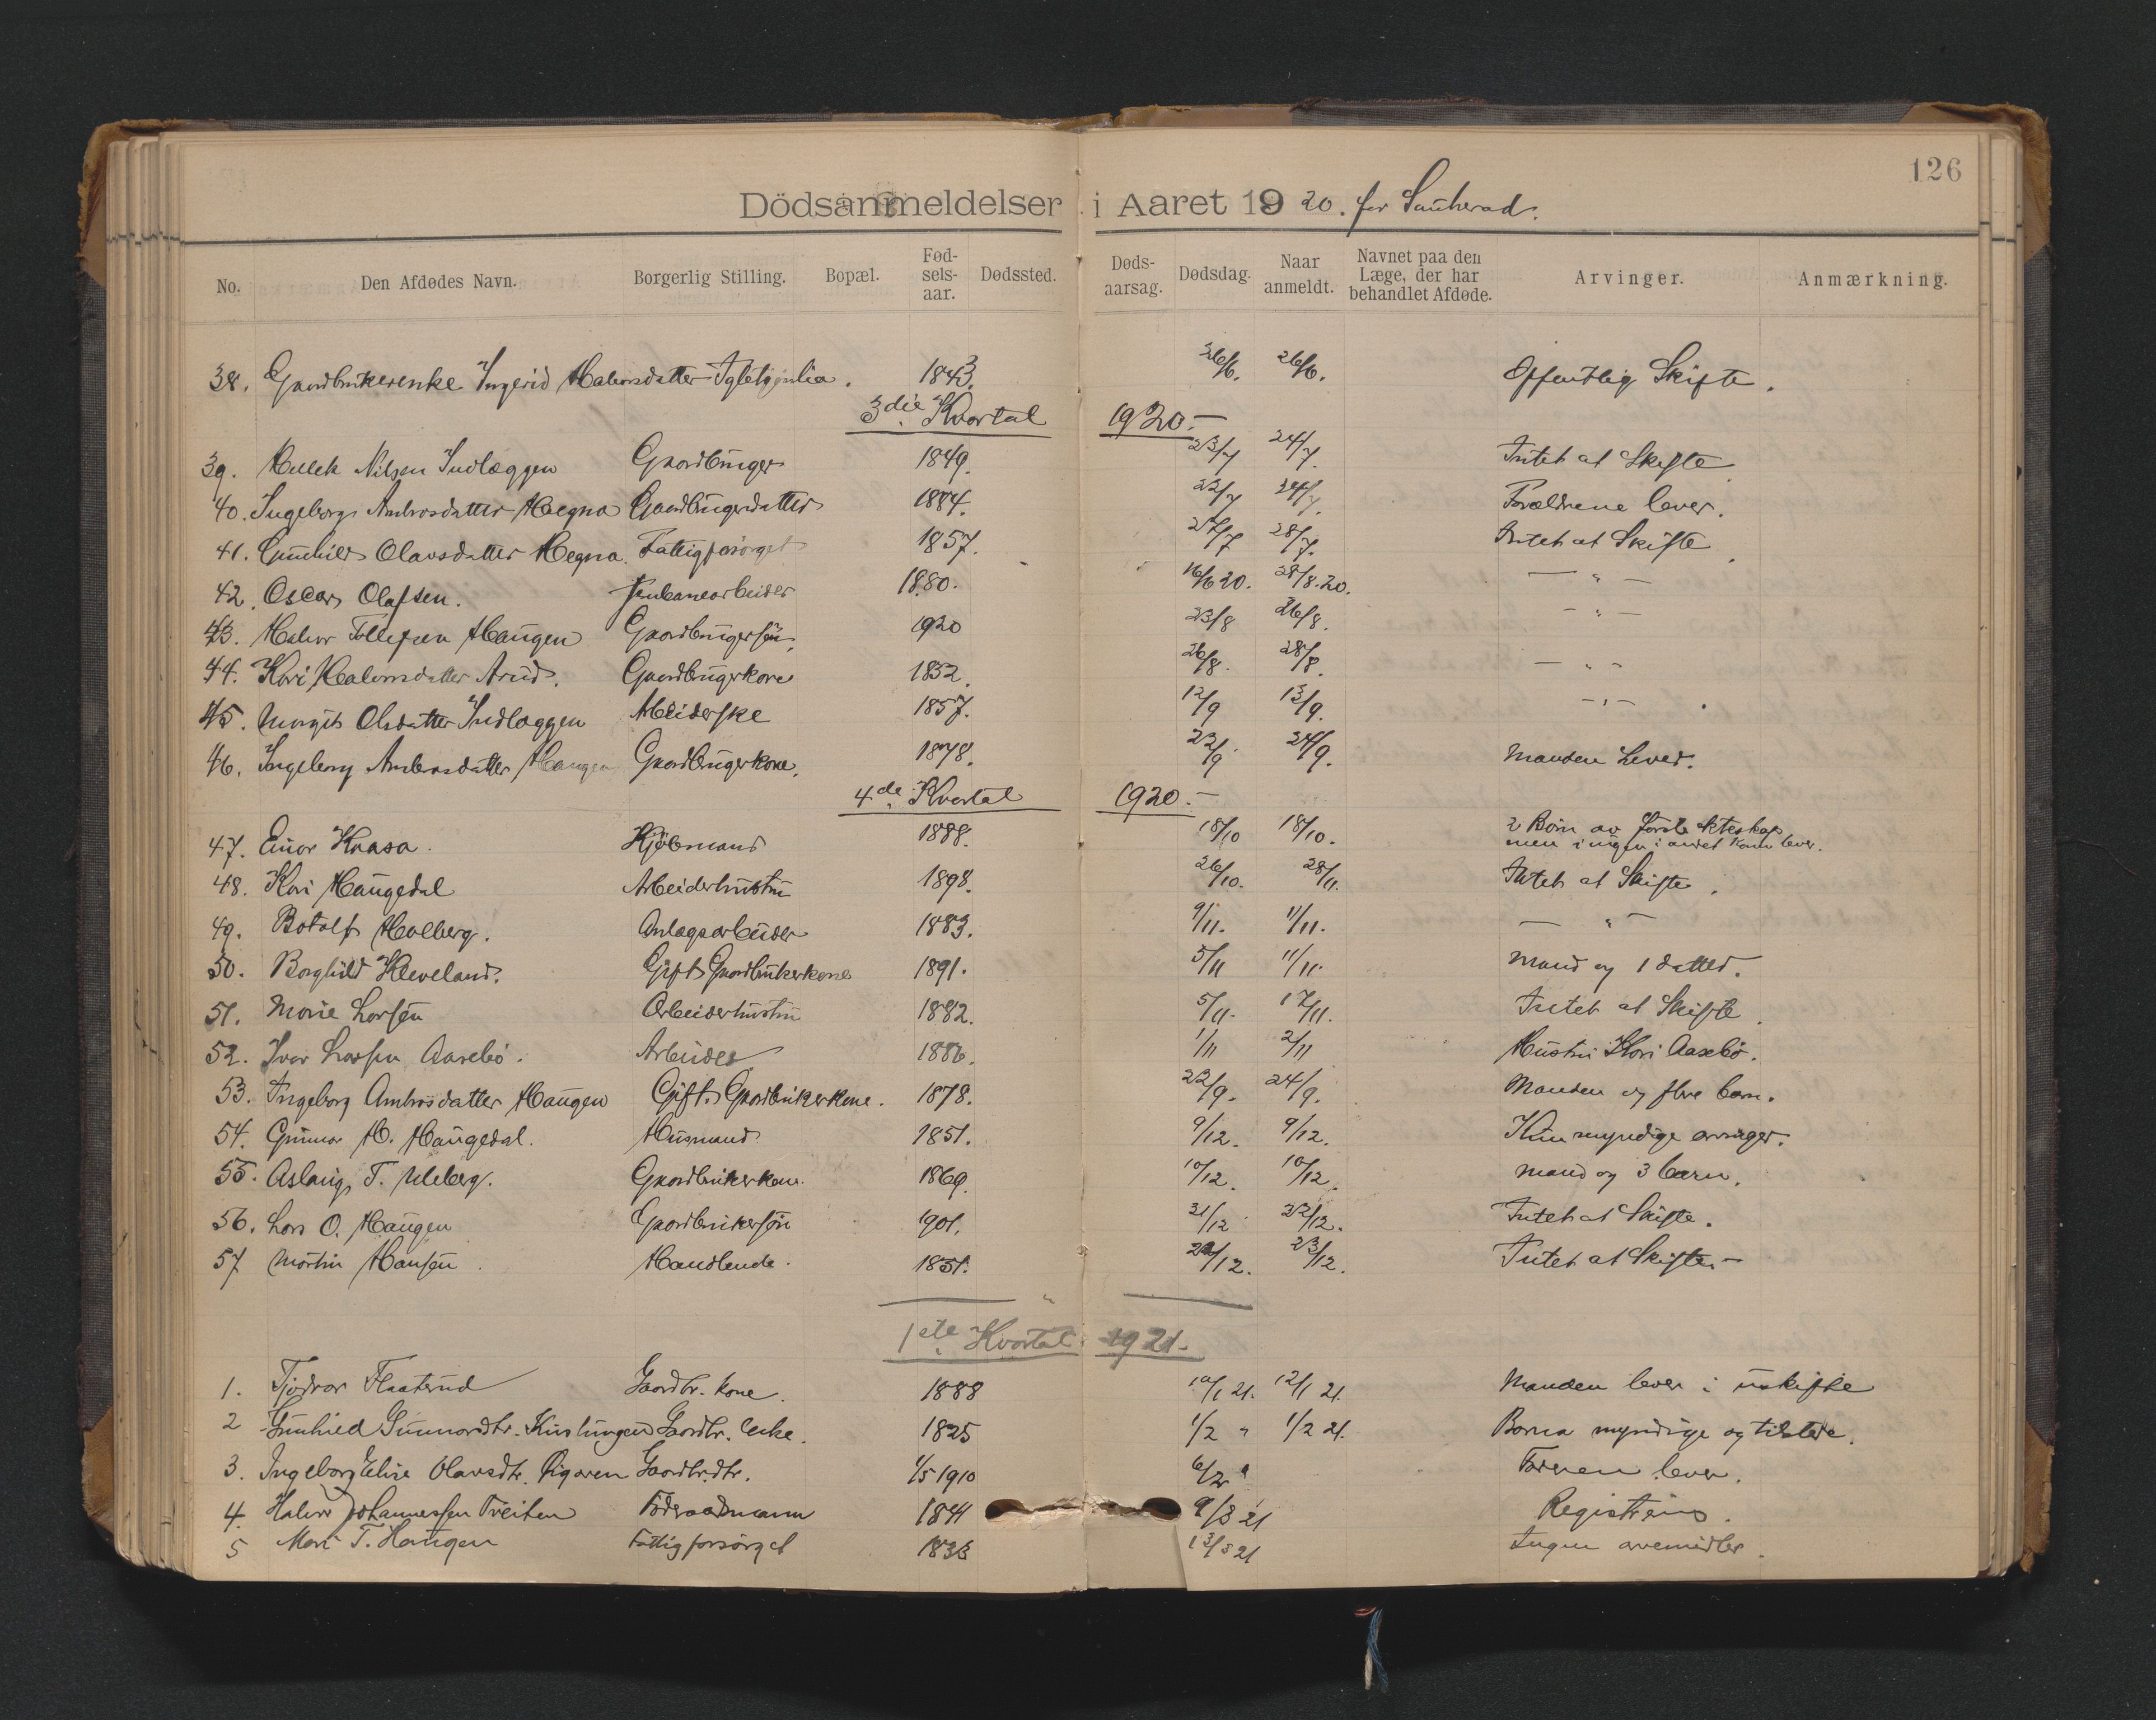 126
Dödsanmeldelser i Aaret 1920. for Sauherad.
No. Den Afdødes Navn. Borgerlig Stilling. Bopæl. Fød-sels-aar. Dødssted. Døds-aarsag. Dødsdag. Naar anmeldt. Navnet paa den Læge, der har behandlet Afdøde. Arvinger. Anmærkning.
38. Gaardbrukerenke Ingerid Halvorsdatter 1843. 26/6. 26/6. Offentlig Skifte.
3die Kvartal 1920.-
39. Nilsen Indlæggen Gaardbruger 1849. 23/7 24/7. Intet at Skifte
40. Ingeborg Ambrosdatter Hegna Gaardbrugerdatter 1884. 22/7 24/7. Forældrene lever.
41. Gunhild Olavsdatter Hegna. Fattigforsørget 1857. 27/7 28/7. Intet at Skifte.
42. Oscar Olafsen. Jernbanearbeider 1880. 16/6 20. 28/8.20. — " —
43. Halvor Tollefsen Haugen Gaardbrugersøn. 1920 23/8 26/8. — " —
44. Kari Halvorsdatter Arud. Gaardbrugerkone 1832. 26/8. 28/8. — " —
45. Margit Olsdatter Indlæggen Arbeiderske 1857. 12/9 13/9. — " —
46. Ingeborg Ambrosdatter Haugen Gaardbrugerkone. 1878. 22/9 24/9. Manden Lever.
4de Kvartal 1920.-
47. Einar Kaasa. Kjøbmand 1888. 18/10 18/10. 2 Børn av første ekteskap
men ingen i andet kone lever.
48. Kari Haugedal Arbeiderhustru 1898. 26/10. 28/11. Intet at Skifte.
49. Botolf Halberg. Anlægsarbeider 1883. 9/11. 11/11. — " —
50. Borghild Kleveland. Gift Gaardbrukerkone 1891. 5/11 11/11. Mand og 1 datter.
51. Marie Larsen Arbeiderhustru 1882. 5/11. 17/11. Intet at Skifte.
52. Ivar Larsen Aasebø. Arbeider 1886. 1/11 2/11 Hustru Kari Aasebø.
53. Ingeborg Ambrosdatter Haugen Gift. Gaardbrukerkone. 1878. 22/9. 24/9. Manden og flere barn.
54. Gunnar H. Haugedal. Husmand 1851. 9/12. 9/12. Kun myndige arvinger.
55. Aslaug T. Uleberg. Gaardbrukerkone. 1869. 10/12. 10/12. Mand og 3 barn.
56. Lars O. Haugen Gaardbrukersøn 1901. 21/12 22/12. Intet at Skifte.
57 Martin Hansen. Handlende. 1851. 22/12. 23/12. Intet at Skifte.-
1ste Kvartal 1921.
1. Tjodvor Flaaterud Gaardbr. kone. 1888 10/1 21. 12/1 21. Manden lever i uskifte
2 Gunhild Gunnarsdtr. Gaardbr. enke. 1825 1/2 " 1/2 21. Barna myndige og tilstede.
3. Ingeborg Elise Olavsdtr. Gaardbr.dtr. 1/5 1910 6/2 " Faren lever.
4. Halvor Johannessen Treiten Føderaadsmann 1841 9/3 21 Registrering.
5 Mari T. Haugen Fattigforsørget 1833 13/3 21 Ingen arvemidler.